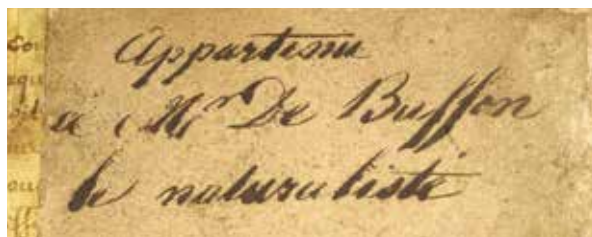 Appartenu
à Mr De Buffon
le naturaliste